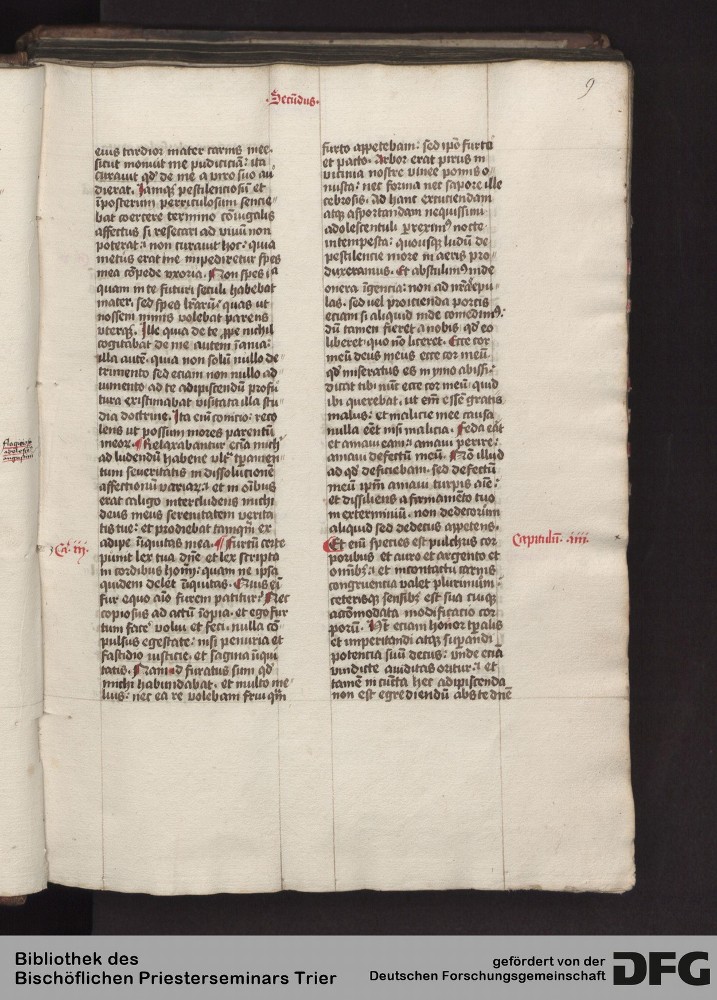 ·Secūdus·
9
eius tardior mater carnis mee·
sicut monuit me pudiciciā: ita
curauit qd' de me a viro suo au
dierat. Iamqꝫ pestilenciosū et
īposterum periculosum sencie
bat cohercere termino cōiugalis
affectus si resecari ad viuū non
poterat: non curauit hoc: quia
metus erat me impediretur spes
mea cōpede vxoria. Non spes ꝉa
quam in te futuri seculi habebat
mater. sed spes lrarū: quas ut
nossem nimis volebat parens
vterqꝫ. Ille quia de te ꝓpe nichil
cogitabat de me autem īania:
illa autē. quia non solū nullo de
trimento sed eciam non nullo ad
iumento ad te adipiscendū profu
tura existimabat vsitata illa stu
dia doctrine. Ita eim conicio: reco
lens ut possum mores parentū
meoꝝ. Relaxabantur eciā mich'
ad ludendū habene vlt' tpamen
tum seueritatis in dissolucionē
affectionū variaꝝ: et in oībus
erat caligo intercludens michi
deus meus serenitatem verita
tis tue: et prodiebat tamqm̄ ex
adipe īiquitas mea. Furtū certe
Ca. iij.
punit lex tua dn̄e et lex scripta
in cordibus homī: quam ne ipsa
quidem delet īiquitas. Quis eī
fur equo aīo furem patitur? Nec
copiosus ad actū īopia. et ego fur
tum face' volui et feci. nulla cō
pulsus egestate: nisi penuria et
fastidio iusticie. et sagina īiqui
tatis. Nam id furatus sum qd'
michi habundabat. et multo me
lius: nec ea re volebam frui qm̄
furto appetebam: sed ipō furtō
et pccatō. Arbor erat pirus in
vicinia nostre vinee pomis o
nusta: nec forma nec sapore ille
cebrosis. ad hanc excuciendam
atqꝫ asportandam nequissimi
adolescentuli ꝑreximꝰ nocte
intempesta: quousqꝫ ludū de
pestilencie more in areis pro
duxeramus. Et abstulimꝰ inde
onera īgencia: non ad nrās epu
las. sed vel proicienda porcis
eciam si aliquid inde comedimꝰ:
dū tamen fieret a nobis qd' eo
liberet quo nō liceret. Ecce cor
meū deus meus ecce cor meū.
qd' miseratus es in ymo abissi.
dicat tibi nūc ecce cor meū. quid
ibi querebat. ut eēm gratis
malus: et malicie mee causa
nulla eēt nisi malicia. Feda eāt
et amaui eam: amaui perire:
amaui defectū meū. Nō illud
ad qd' deficiebam. sed defectū
meū ipm̄ amaui turpis aīe:
et dissiliens a firmamēto tuo
in exterminiū. non dedecorum
aliquid sed dedecus appetens.
Et eim species est pulchris cor
Capitulū· iiij.
poribus et auro et argento et
om̄ibꝫ: et in contactu carnis
congruencia valet plurimū.
ceterisqꝫ sensibꝫ est sua cuiqꝫ
acōmodata modificacio cor
porū. Het eciam honor tpalis
et imperitandi atqꝫ supandi
potencia suū decus: unde eciā
vindicte auiditas oritur: et
tamē in cūcta hec adipiscenda
non est egrediendū abs te dn̄e
Bibliothek des
Bischöflichen Priesterseminars Trier
gefördert von der
Deutschen Forschungsgemeinschaft
DFG